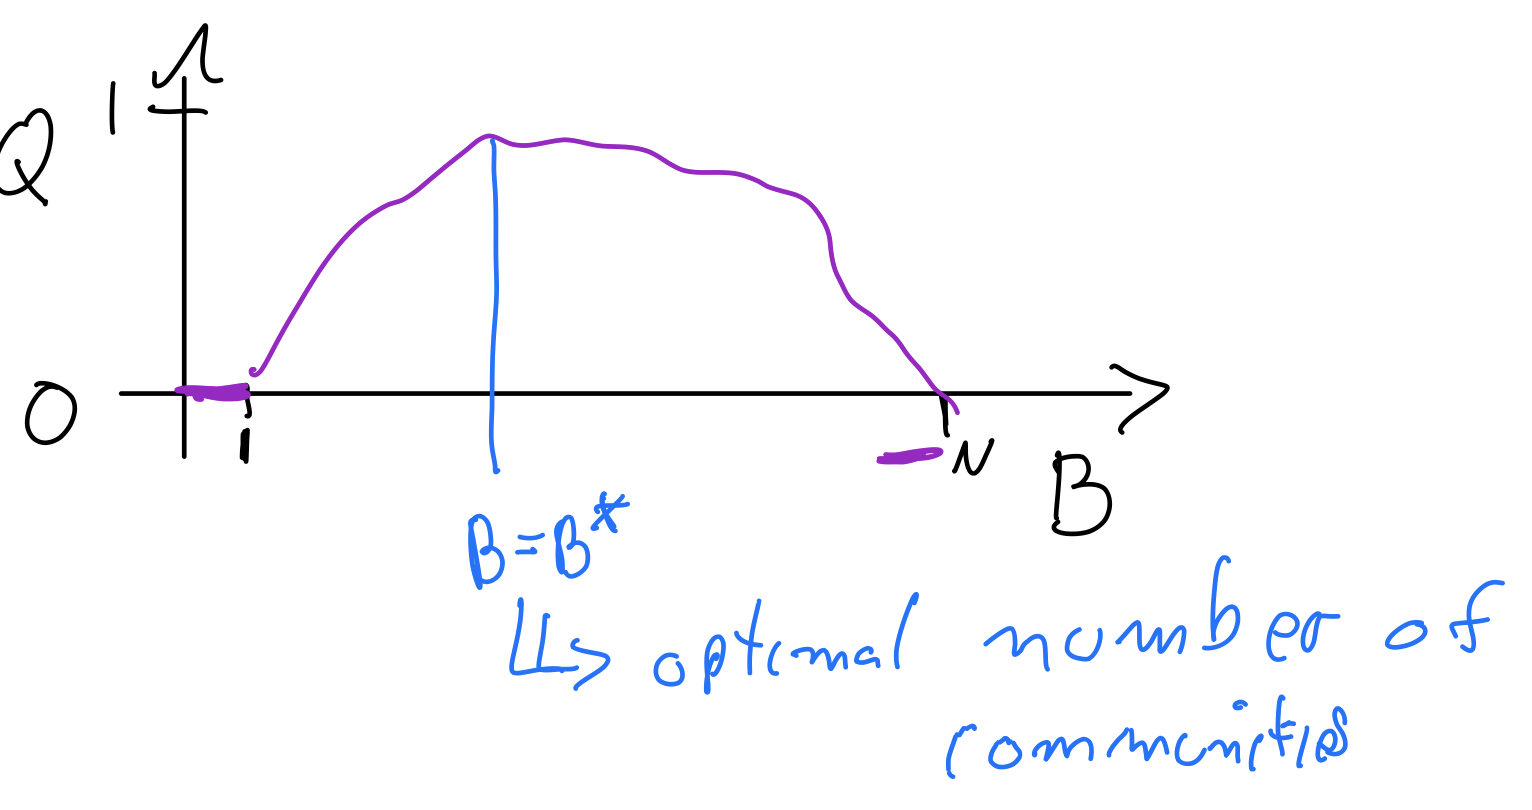 Q 1
0
1 N B
B = B*
↳ optimal number of
communities